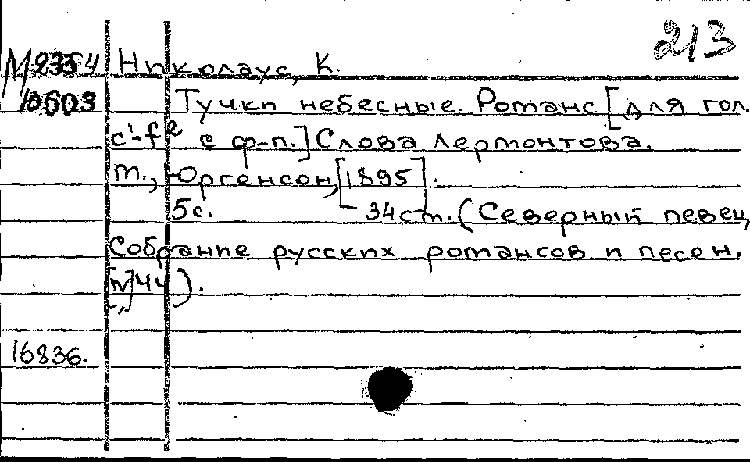 213
М9354 Николаус, К.
10603 Тучки небесные. Романс [для гол.
c¹-f² с ф-п.] Слова Лермонтова.
М., Юргенсон, [1895].
5с. 34см. (Северный певец,
Собрание русских романсов и песен.
[№]44).
16836.